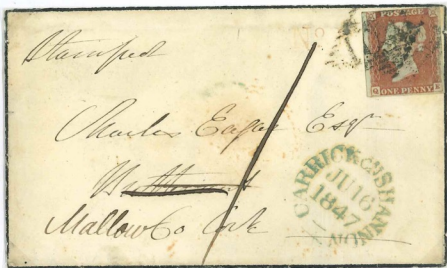 Stamped
POSTAGE
ONE PENNY
Charles Eagar Esqr
Mallow Co Cork
CARRICK ON SHANNON
JU 16
1847